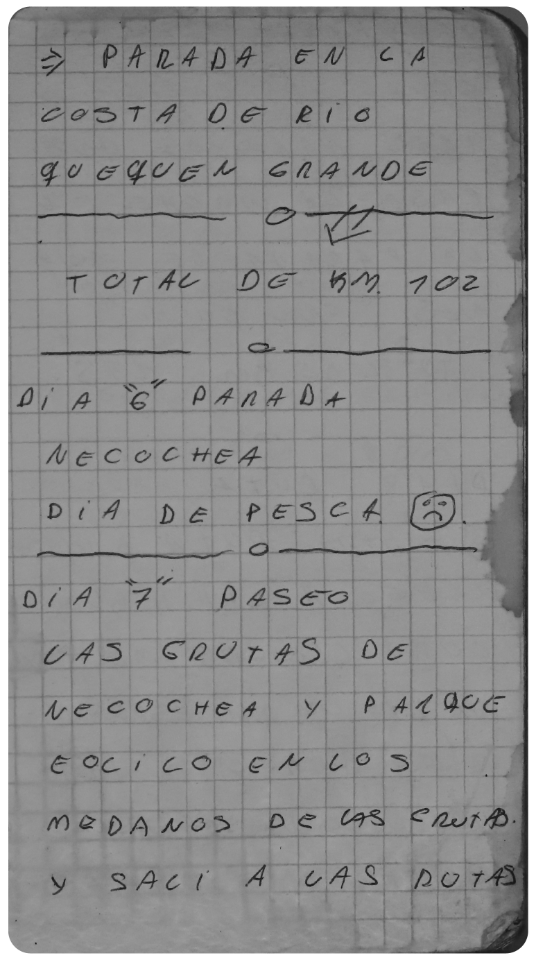 ⇒ PARADA EN LA
COSTA DE RIO
QUEQUEN GRANDE
TOTAL DE KM. 102
DIA "6" PARADA
NECOCHEA
DIA DE PESCA.
DIA "7" PASEO
LAS GRUTAS DE
NECOCHEA Y PARQUE
EOLICO EN LOS
MEDANOS DE LAS GRUTAS.
Y SALI A LAS RUTAS